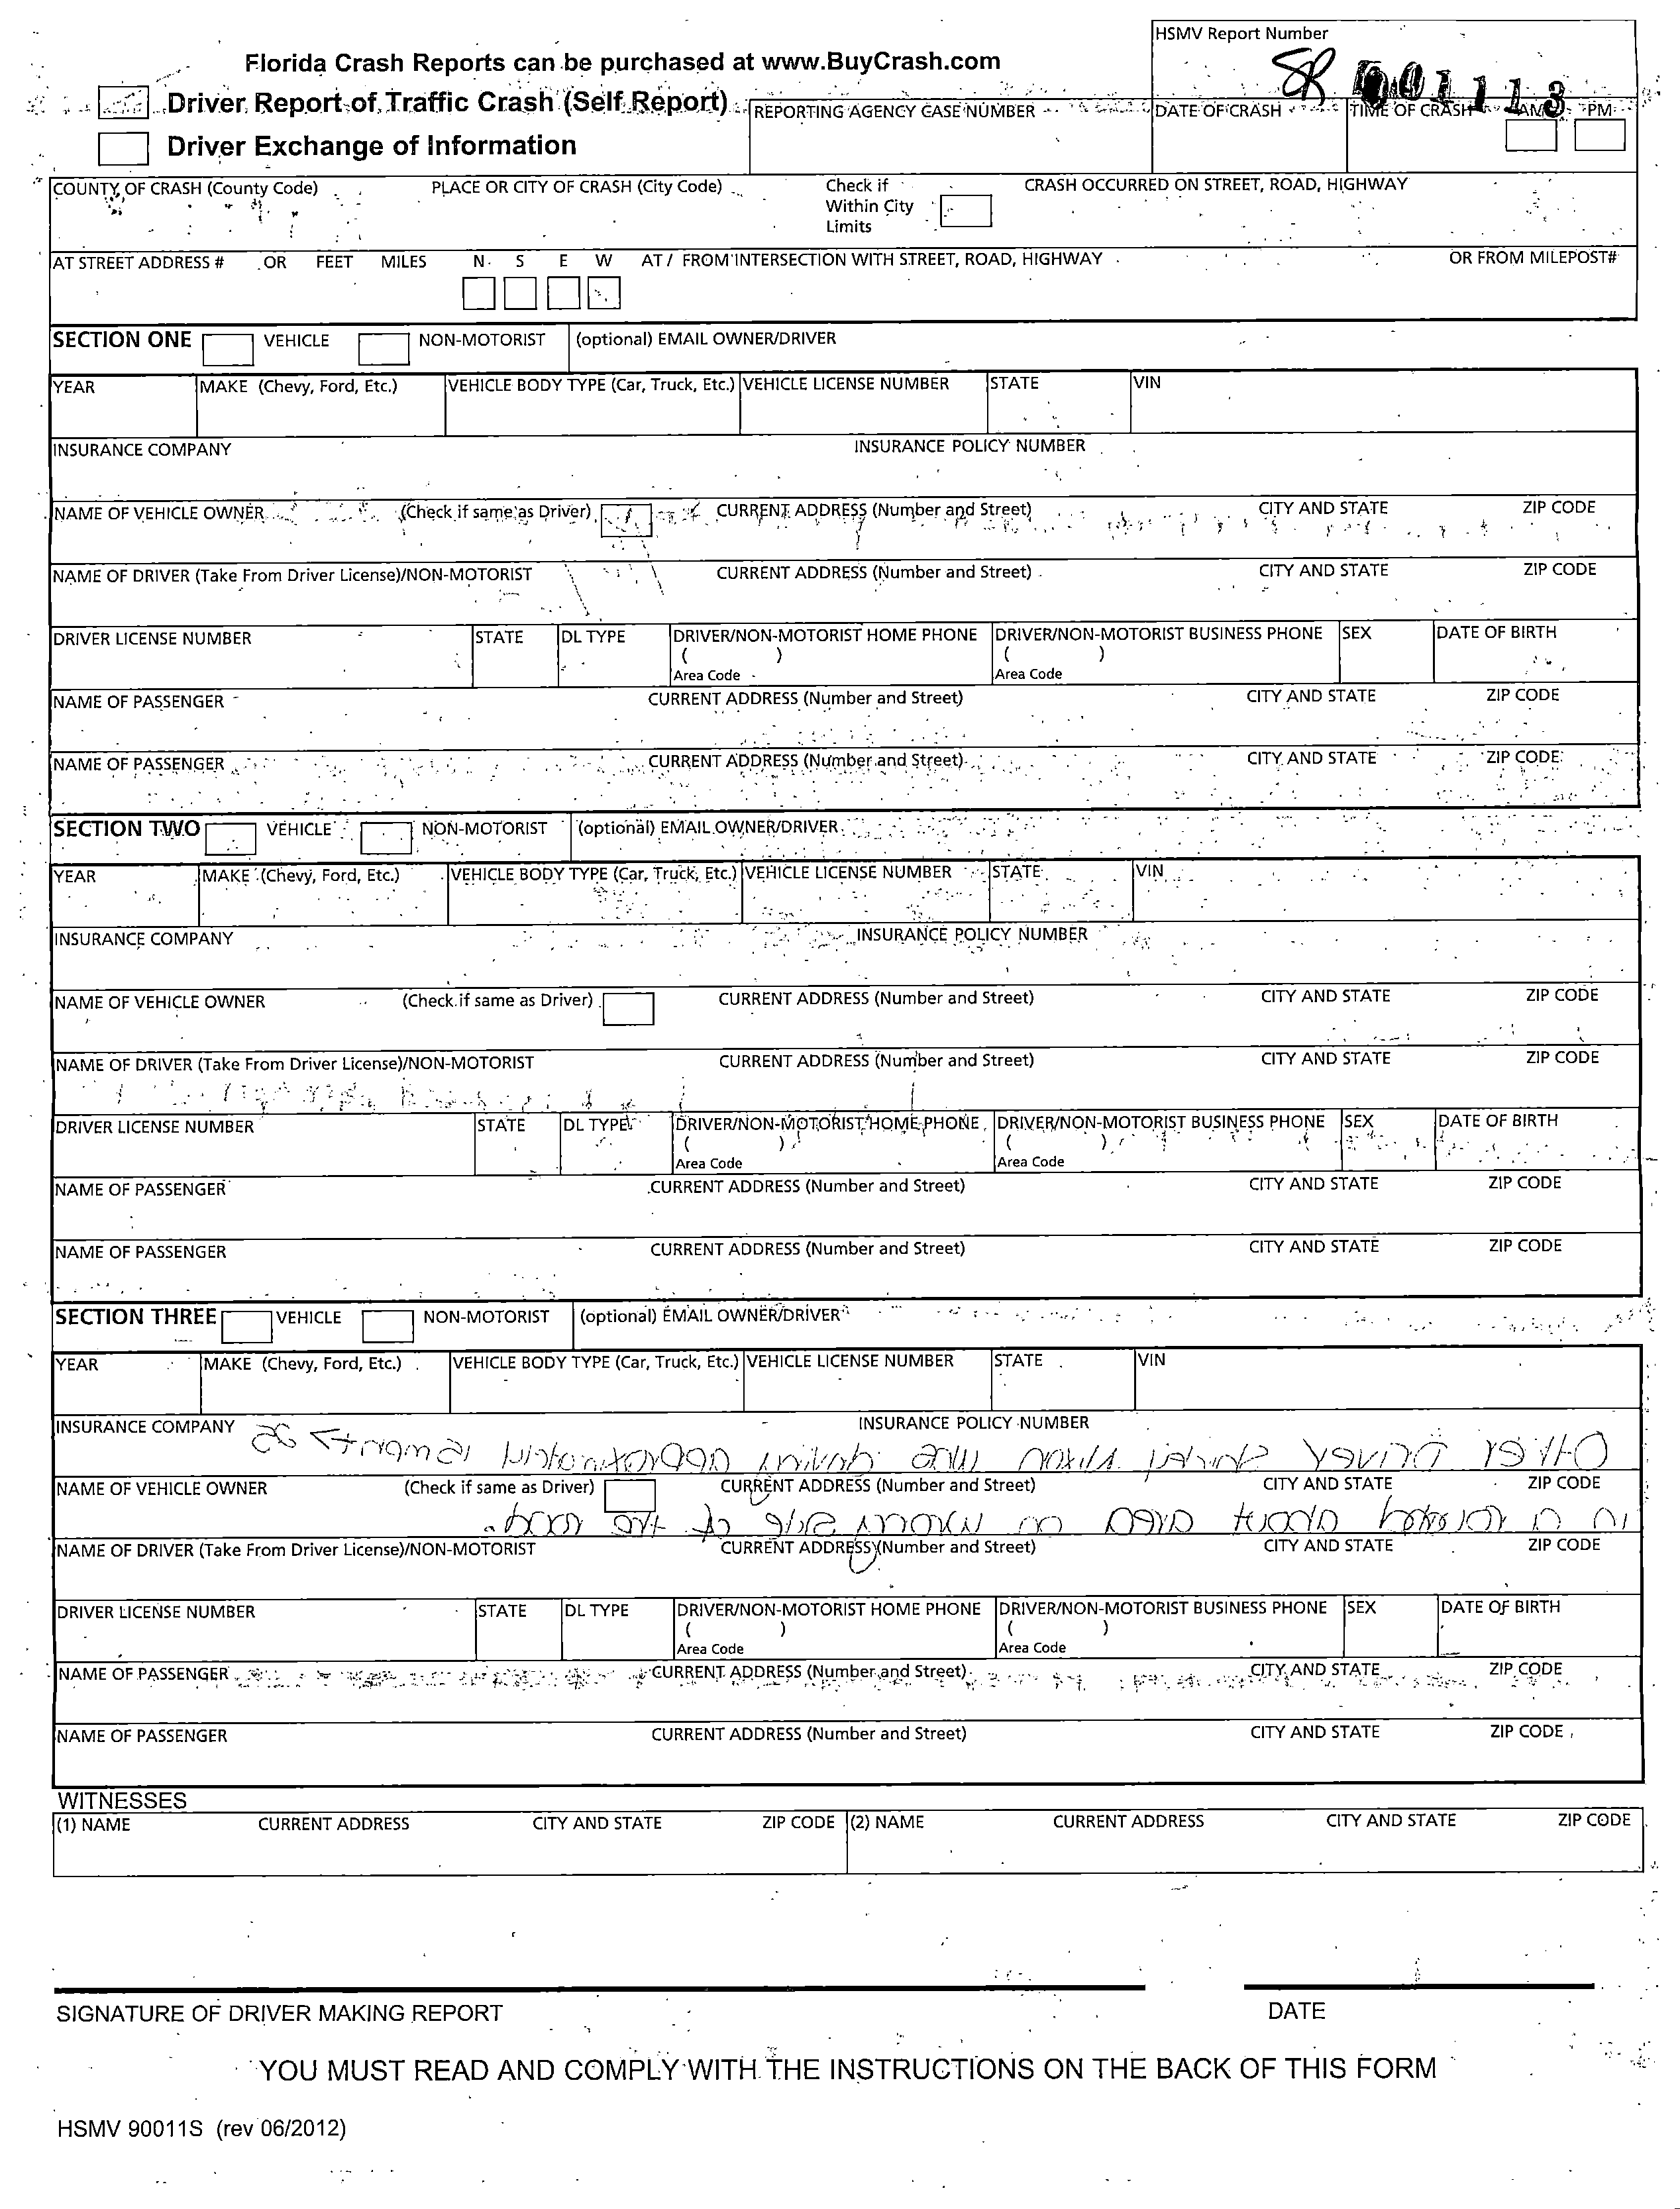 HSMV Report Number
Florida Crash Reports can be purchased at www.BuyCrash.com
SR 001113
Driver Report of Traffic Crash (Self Report)
REPORTING AGENCY CASE NUMBER DATE OF CRASH TIME OF CRASH AM PM
Driver Exchange of Information
COUNTY OF CRASH (County Code) PLACE OR CITY OF CRASH (City Code) Check if Within City Limits CRASH OCCURRED ON STREET, ROAD, HIGHWAY
AT STREET ADDRESS # OR FEET MILES N S E W AT / FROM INTERSECTION WITH STREET, ROAD, HIGHWAY OR FROM MILEPOST#
SECTION ONE VEHICLE NON-MOTORIST (optional) EMAIL OWNER/DRIVER
YEAR MAKE (Chevy, Ford, Etc.) VEHICLE BODY TYPE (Car, Truck, Etc.) VEHICLE LICENSE NUMBER STATE VIN
INSURANCE COMPANY INSURANCE POLICY NUMBER
NAME OF VEHICLE OWNER (Check if same as Driver) CURRENT ADDRESS (Number and Street) CITY AND STATE ZIP CODE
NAME OF DRIVER (Take From Driver License)/NON-MOTORIST CURRENT ADDRESS (Number and Street) CITY AND STATE ZIP CODE
DRIVER LICENSE NUMBER STATE DL TYPE DRIVER/NON-MOTORIST HOME PHONE DRIVER/NON-MOTORIST BUSINESS PHONE SEX DATE OF BIRTH
( ) ( )
Area Code Area Code
NAME OF PASSENGER CURRENT ADDRESS (Number and Street) CITY AND STATE ZIP CODE
NAME OF PASSENGER CURRENT ADDRESS (Number and Street) CITY AND STATE ZIP CODE
SECTION TWO VEHICLE NON-MOTORIST (optional) EMAIL OWNER/DRIVER
YEAR MAKE (Chevy, Ford, Etc.) VEHICLE BODY TYPE (Car, Truck, Etc.) VEHICLE LICENSE NUMBER STATE VIN
INSURANCE COMPANY INSURANCE POLICY NUMBER
NAME OF VEHICLE OWNER (Check if same as Driver) CURRENT ADDRESS (Number and Street) CITY AND STATE ZIP CODE
NAME OF DRIVER (Take From Driver License)/NON-MOTORIST CURRENT ADDRESS (Number and Street) CITY AND STATE ZIP CODE
DRIVER LICENSE NUMBER STATE DL TYPE DRIVER/NON-MOTORIST HOME PHONE DRIVER/NON-MOTORIST BUSINESS PHONE SEX DATE OF BIRTH
( ) ( )
Area Code Area Code
NAME OF PASSENGER CURRENT ADDRESS (Number and Street) CITY AND STATE ZIP CODE
NAME OF PASSENGER CURRENT ADDRESS (Number and Street) CITY AND STATE ZIP CODE
SECTION THREE VEHICLE NON-MOTORIST (optional) EMAIL OWNER/DRIVER
YEAR MAKE (Chevy, Ford, Etc.) VEHICLE BODY TYPE (Car, Truck, Etc.) VEHICLE LICENSE NUMBER STATE VIN
INSURANCE COMPANY INSURANCE POLICY NUMBER
NAME OF VEHICLE OWNER (Check if same as Driver) CURRENT ADDRESS (Number and Street) CITY AND STATE ZIP CODE
NAME OF DRIVER (Take From Driver License)/NON-MOTORIST CURRENT ADDRESS (Number and Street) CITY AND STATE ZIP CODE
DRIVER LICENSE NUMBER STATE DL TYPE DRIVER/NON-MOTORIST HOME PHONE DRIVER/NON-MOTORIST BUSINESS PHONE SEX DATE OF BIRTH
( ) ( )
Area Code Area Code
NAME OF PASSENGER CURRENT ADDRESS (Number and Street) CITY AND STATE ZIP CODE
NAME OF PASSENGER CURRENT ADDRESS (Number and Street) CITY AND STATE ZIP CODE
WITNESSES
(1) NAME CURRENT ADDRESS CITY AND STATE ZIP CODE (2) NAME CURRENT ADDRESS CITY AND STATE ZIP CODE
SIGNATURE OF DRIVER MAKING REPORT DATE
YOU MUST READ AND COMPLY WITH THE INSTRUCTIONS ON THE BACK OF THIS FORM
HSMV 90011S (rev 06/2012)